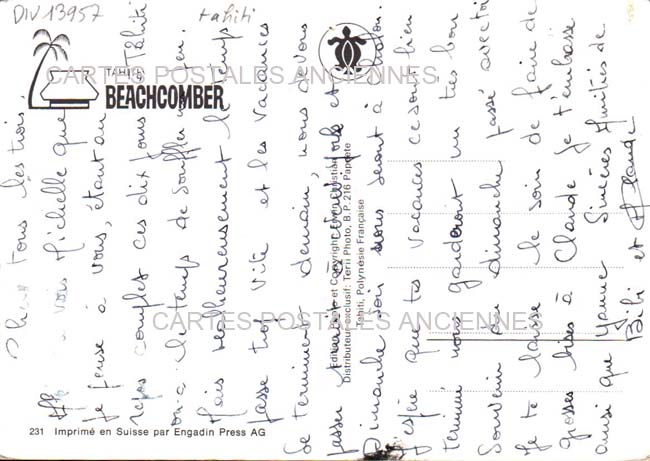 DIV 13957
tahiti
TAHITI
BEACHCOMBER
CARTES POSTALES ANCIENNES
CARTES POSTALES ANCIENNES
Editions, Photo et Copyright: Erwin Christian
Distributeur exclusif: Terii Photo, B.P. 216 Papeete
Tahiti, Polynésie Française
231 Imprimé en Suisse par Engadin Press AG
Chers tous les trois, Tahiti
à vous Michelle que
je pense à vous, étant au
repos complet ces dix jours
on a le temps de souffler un peu.
Mais malheureusement le temps
passe trop vite et les vacances
se terminent demain, nous allons
passer
Dimanche soir nous seront à
J'espère que tes vacances ce sont bien
terminé nous garderont un très bon
souvenir du dimanche passé avec toi
Je te laisse le soin de faire de
grosses bises à Claude je t'embrasse
ainsi que Yanne Sincères Amitiés de
Bibi et Claude